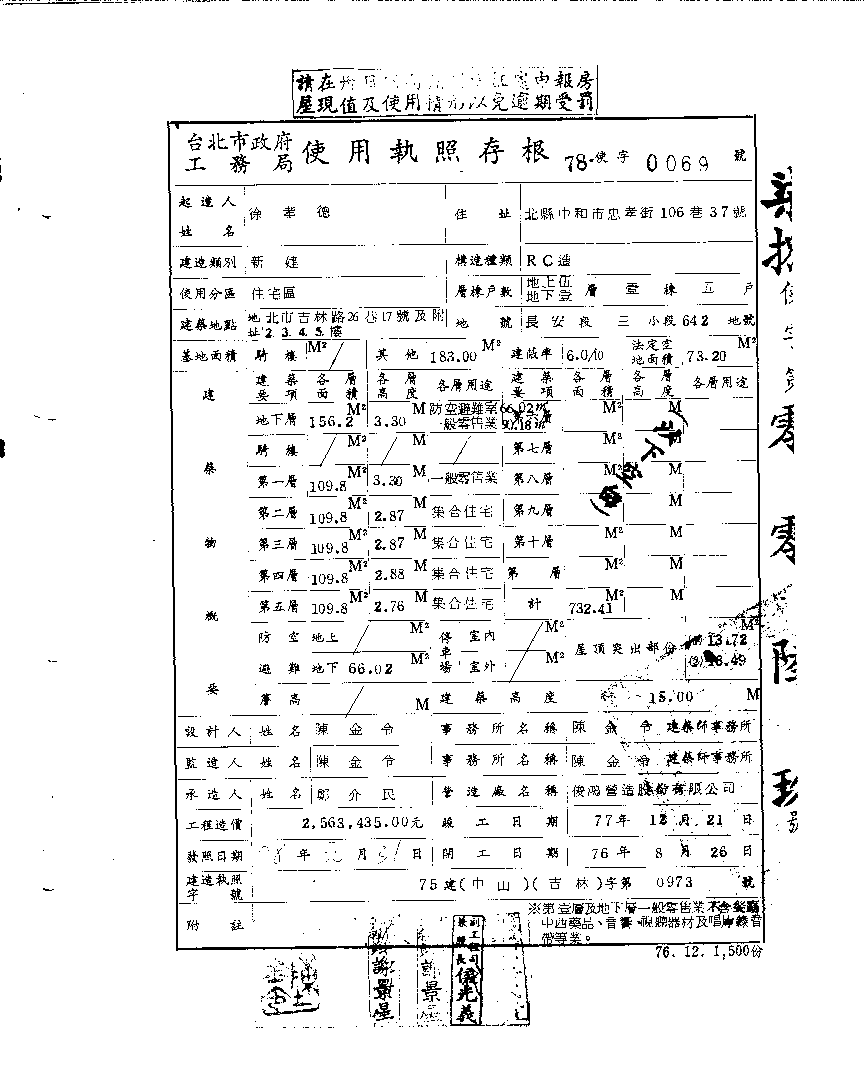 請在 內報房
屋現值及使用情形以免逾期受罰
台北市政府
工務局 使用執照存根 78使字 0069 號
起造人姓名 徐孝德 住址 北縣中和市忠孝街106巷37號
建造類別 新建 構造種類 RC造
使用分區 住宅區 層棟戶數 地上伍地下壹 層 壹 棟 五 戶
建築地點 北市吉林路26巷17號及附2.3.4.5.樓 地號 長安段 三 小段 642 地號
基地面積 騎樓 M² 其他 183.00 M² 建蔽率 6.0/10 法定空地面積 73.20 M²
建築物概要
建築要項 各層面積 各層高度 各層用途 建築要項 各層面積 各層高度 各層用途
地下層 156.2 M² 3.30 M 防空避難室66.02㎡ 一般零售業90.18㎡ 第六層 M² M
騎樓 M² M 第七層 M² M
第一層 109.8 M² 3.30 M 一般零售業 第八層 M² M
第二層 109.8 M² 2.87 M 集合住宅 第九層 M² M
第三層 109.8 M² 2.87 M 集合住宅 第十層 M² M
第四層 109.8 M² 2.88 M 集合住宅 第 層 M² M
第五層 109.8 M² 2.76 M 集合住宅 計 732.41 M² M
防空避難 地上 M² 停車場 室內 M² 屋頂突出部份 13.72 M²
地下 66.02 M² 室外 M² (2)
簷高 M 建築高度 15.00 M
設計人 姓名 陳金令 事務所名稱 陳金令 建築師事務所
監造人 姓名 陳金令 事務所名稱 陳金令 建築師事務所
承造人 姓名 鄭介民 營造廠名稱 俊鴻營造股份有限公司
工程造價 2,563,435.00元 竣工日期 77年 12月 21日
發照日期 年 月 31日 開工日期 76年 8月 26日
建造執照字號 75建(中山)(吉林)字第 0973 號
附註 ※第壹層及地下層一般零售業不含餐廳
中西藥品、音響、視聽器材及唱片錄音
帶等業。
76. 12. 1,500份
使字第零零陸玖號
謝景星